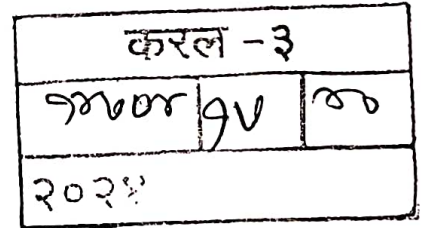 करल - ३
१४७०४ १७
२०२४